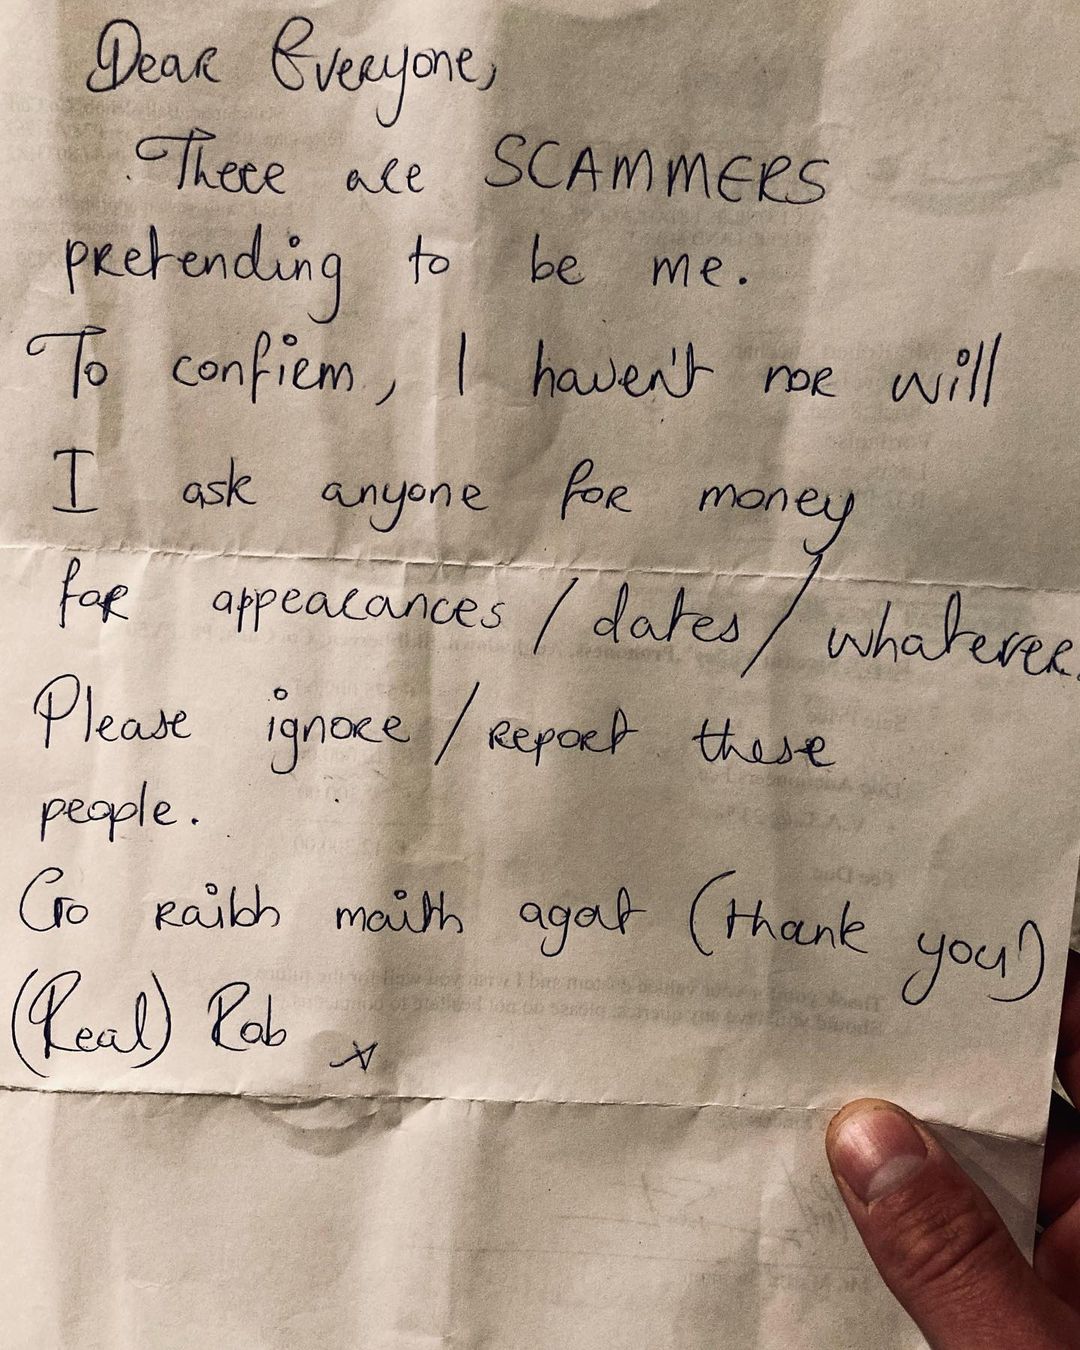 Dear Everyone,
There are SCAMMERS
pretending to be me.
To confirm, I haven't nor will
I ask anyone for money
for appearances / dates / whatever.
Please ignore / report these
people.
Go raibh maith agat (thank you!)
(Real) Rob x